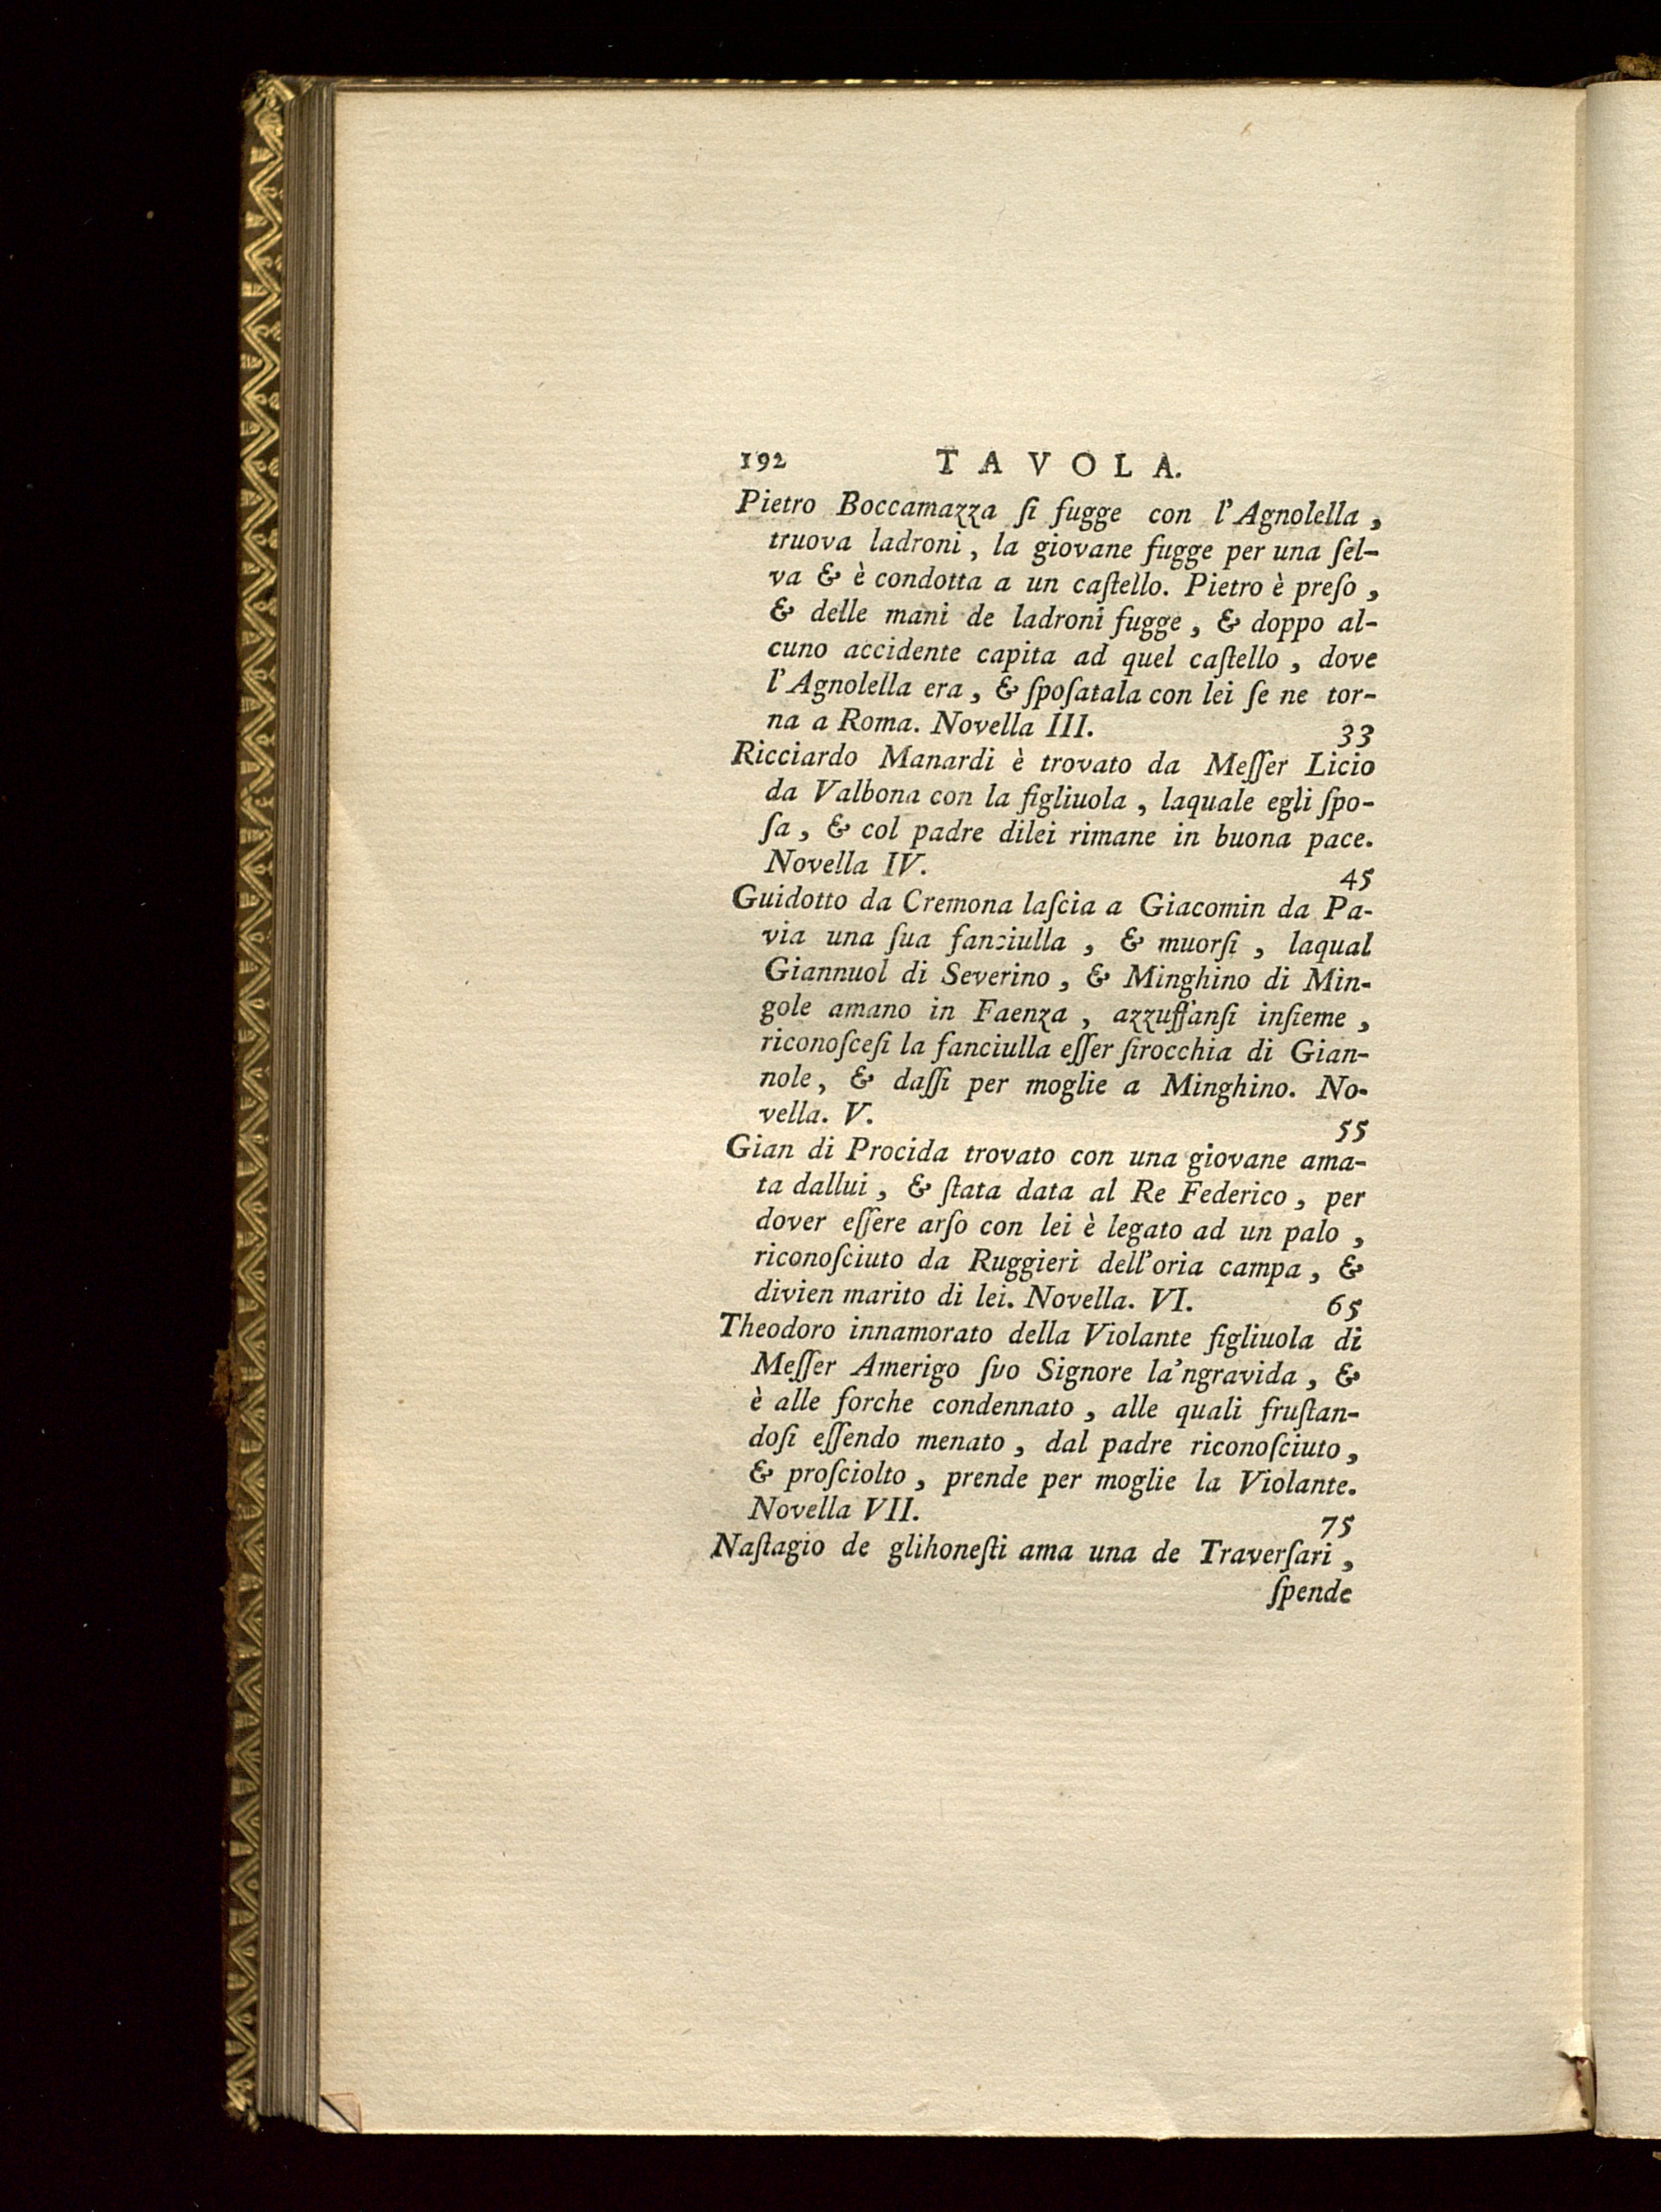 192 TAVOLA.
Pietro Boccamazza ſi fugge con l'Agnolella,
truova ladroni, la giovane fugge per una ſel-
va & è condotta a un caſtello. Pietro è preſo,
& delle mani de ladroni fugge, & doppo al-
cuno accidente capita ad quel caſtello, dove
l'Agnolella era, & ſpoſatala con lei ſe ne tor-
na a Roma. Novella III. 33
Ricciardo Manardi è trovato da Meſſer Licio
da Valbona con la figliuola, laquale egli ſpo-
ſa, & col padre dilei rimane in buona pace.
Novella IV. 45
Guidotto da Cremona laſcia a Giacomin da Pa-
via una ſua fanciulla, & muorſi, laqual
Giannuol di Severino, & Minghino di Min-
gole amano in Faenza, azzuffanſi inſieme,
riconoſceſi la fanciulla eſſer ſirocchia di Gian-
nole, & daſſi per moglie a Minghino. No-
vella. V. 55
Gian di Procida trovato con una giovane ama-
ta dallui, & ſtata data al Re Federico, per
dover eſſere arſo con lei è legato ad un palo,
riconoſciuto da Ruggieri dell'oria campa, &
divien marito di lei. Novella. VI. 65
Theodoro innamorato della Violante figliuola di
Meſſer Amerigo ſvo Signore la'ngravida, &
è alle forche condennato, alle quali fruſtan-
doſi eſſendo menato, dal padre riconoſciuto,
& proſciolto, prende per moglie la Violante.
Novella VII. 75
Naſtagio de glihoneſti ama una de Traverſari,
ſpende